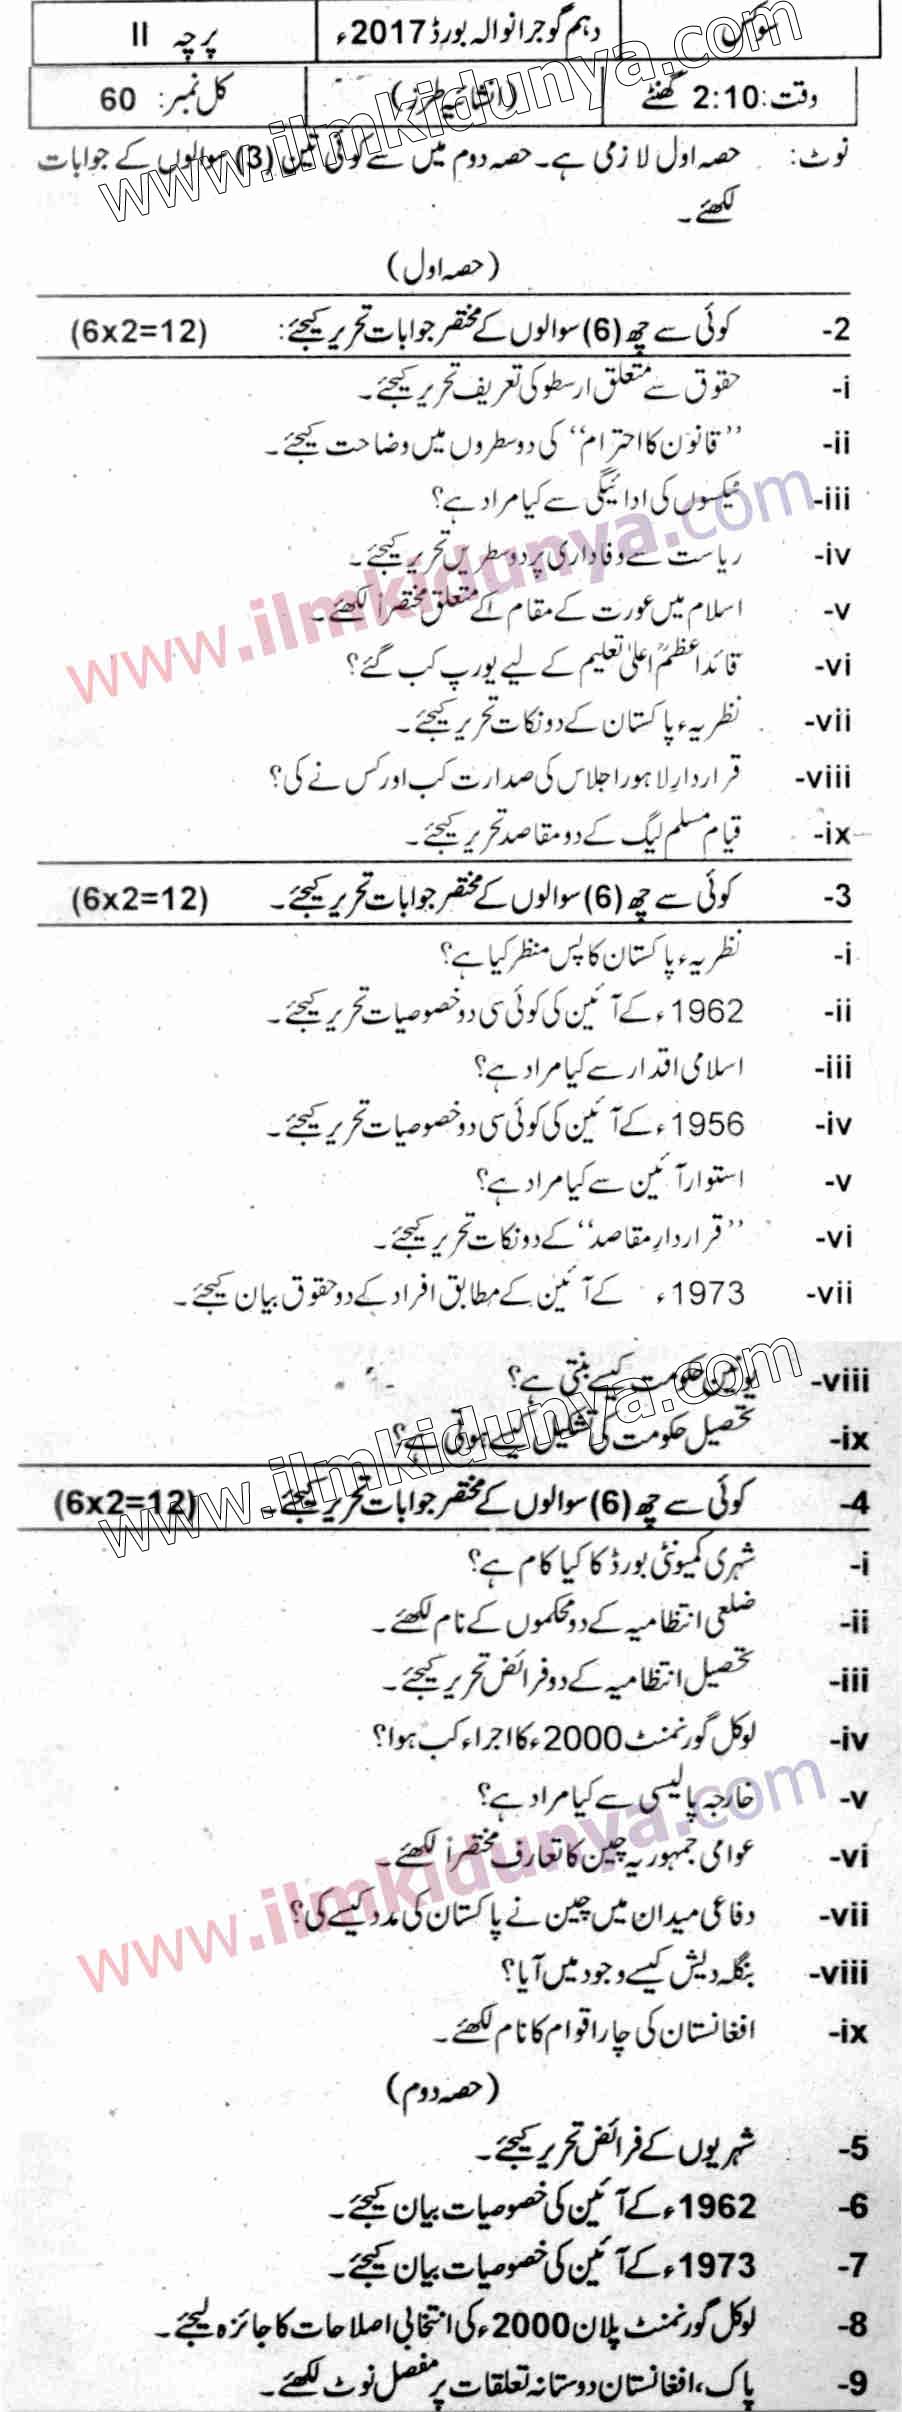 سوکس
دہم گوجرانوالہ بورڈ 2017ء
پرچہ II
وقت: 2:10 گھنٹے
(انشائیہ طرز)
کل نمبر: 60
نوٹ: حصہ اول لازمی ہے۔ حصہ دوم میں سے کوئی تین (3) سوالوں کے جوابات
لکھئے۔
(حصہ اول)
2- کوئی سے چھ (6) سوالوں کے مختصر جوابات تحریر کیجئے: (6x2=12)
i- حقوق سے متعلق ارسطو کی تعریف تحریر کیجئے۔
ii- ’’قانون کا احترام‘‘ کی دو سطروں میں وضاحت کیجئے۔
iii- ٹیکسوں کی ادائیگی سے کیا مراد ہے؟
iv- ریاست سے وفاداری پر دو سطریں تحریر کیجئے۔
v- اسلام میں عورت کے مقام کے متعلق مختصراً لکھئے۔
vi- قائداعظمؒ اعلیٰ تعلیم کے لیے یورپ کب گئے؟
vii- نظریہء پاکستان کے دو نکات تحریر کیجئے۔
viii- قراردارِ لاہور اجلاس کی صدارت کب اور کس نے کی؟
ix- قیام مسلم لیگ کے دو مقاصد تحریر کیجئے۔
3- کوئی سے چھ (6) سوالوں کے مختصر جوابات تحریر کیجئے۔ (6x2=12)
i- نظریہء پاکستان کا پس منظر کیا ہے؟
ii- 1962ء کے آئین کی کوئی سی دو خصوصیات تحریر کیجئے۔
iii- اسلامی اقدار سے کیا مراد ہے؟
iv- 1956ء کے آئین کی کوئی سی دو خصوصیات تحریر کیجئے۔
v- استوار آئین سے کیا مراد ہے؟
vi- ’’قراردارِ مقاصد‘‘ کے دو نکات تحریر کیجئے۔
vii- 1973ء کے آئین کے مطابق افراد کے دو حقوق بیان کیجئے۔
viii- یونین حکومت کیسے بنتی ہے؟
ix- تحصیل حکومت کی تشکیل کیسے ہوتی ہے؟
4- کوئی سے چھ (6) سوالوں کے مختصر جوابات تحریر کیجئے۔ (6x2=12)
i- شہری کمیونٹی بورڈ کا کیا کام ہے؟
ii- ضلعی انتظامیہ کے دو محکموں کے نام لکھئے۔
iii- تحصیل انتظامیہ کے دو فرائض تحریر کیجئے۔
iv- لوکل گورنمنٹ 2000ء کا اجراء کب ہوا؟
v- خارجہ پالیسی سے کیا مراد ہے؟
vi- عوامی جمہوریہ چین کا تعارف مختصراً لکھئے۔
vii- دفاعی میدان میں چین نے پاکستان کی مدد کیسے کی؟
viii- بنگلہ دیش کیسے وجود میں آیا؟
ix- افغانستان کی چار اقوام کا نام لکھئے۔
(حصہ دوم)
5- شہریوں کے فرائض تحریر کیجئے۔
6- 1962ء کے آئین کی خصوصیات بیان کیجئے۔
7- 1973ء کے آئین کی خصوصیات بیان کیجئے۔
8- لوکل گورنمنٹ پلان 2000ء کی انتخابی اصلاحات کا جائزہ لیجئے۔
9- پاک، افغانستان دوستانہ تعلقات پر مفصل نوٹ لکھئے۔
www.ilmkidunya.com
www.ilmkidunya.com
www.ilmkidunya.com
www.ilmkidunya.com